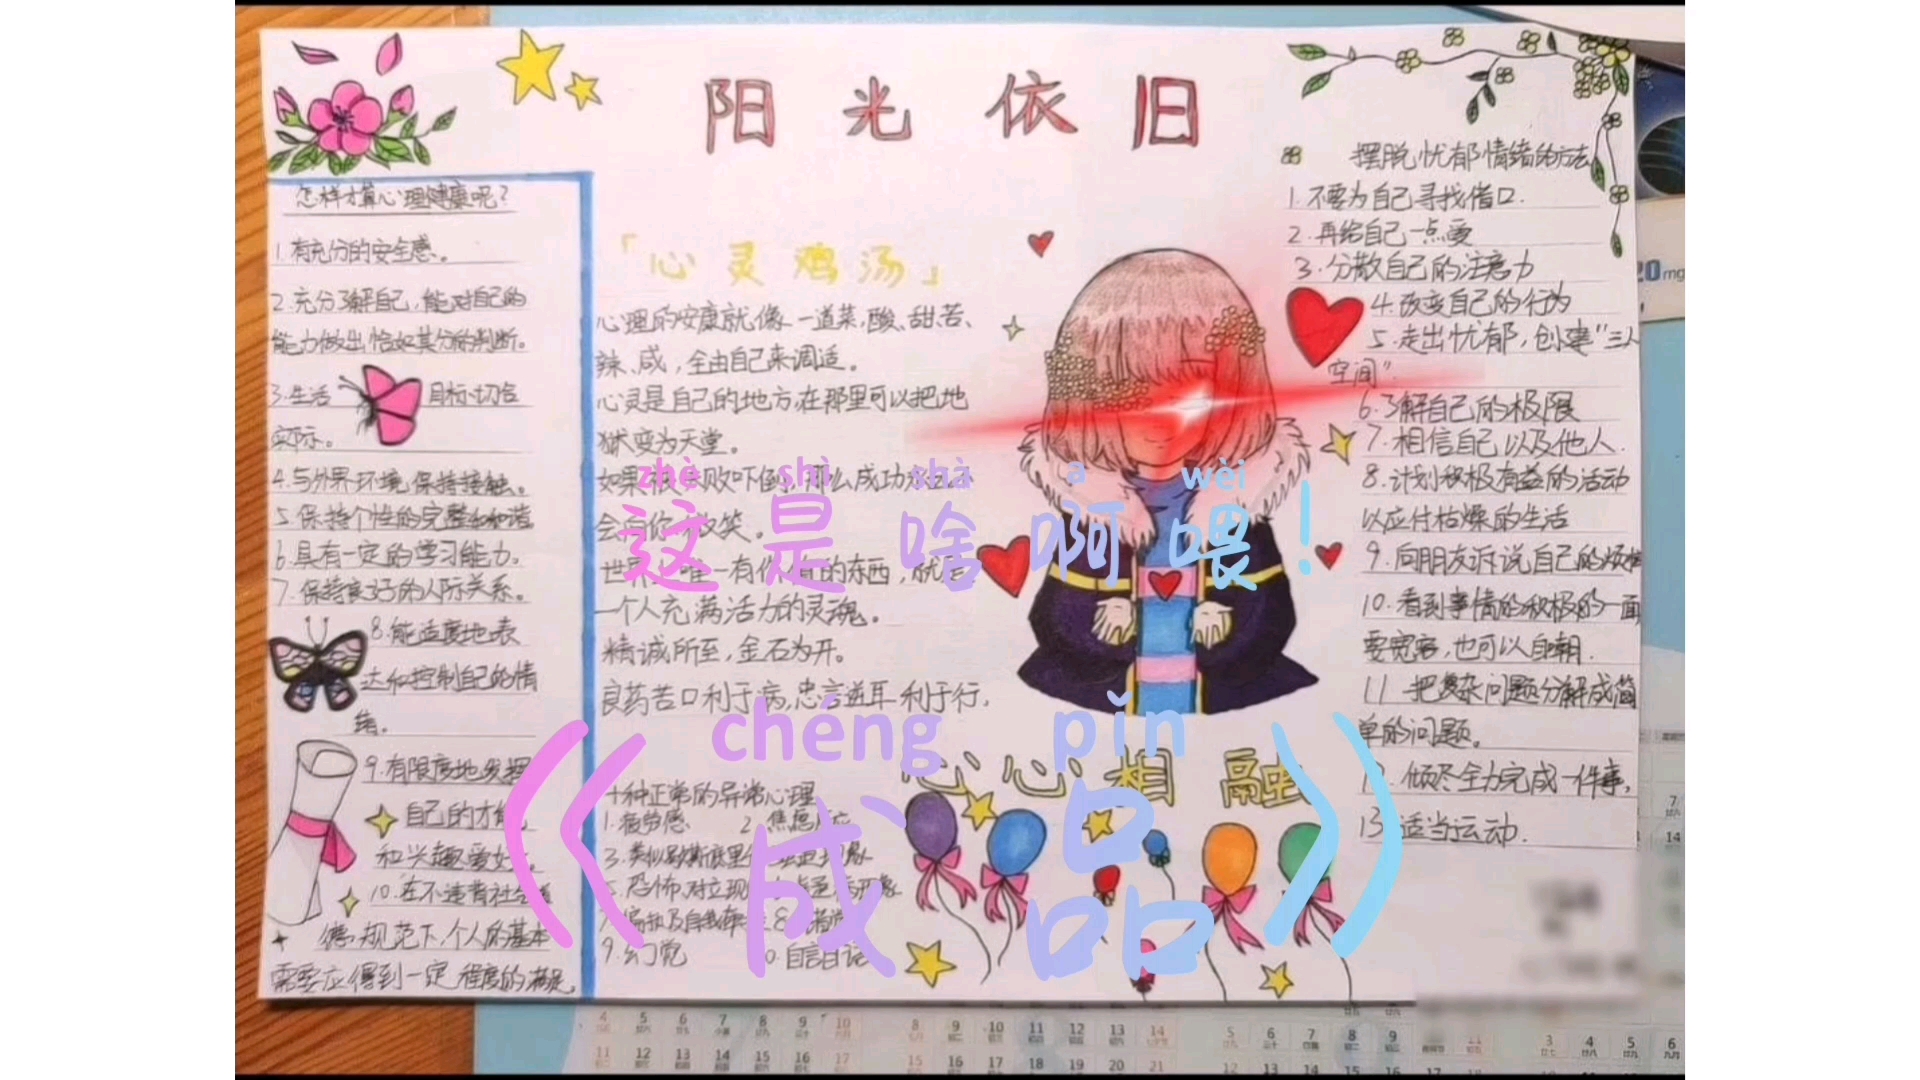 阳光依旧
怎样才算心理健康呢？
1.有充分的安全感。
2.充分了解自己，能对自己的
能力做出恰如其分的判断。
3.生活目标切合
实际。
4.与外界环境保持接触。
5.保持个性的完整和和谐
6.具有一定的学习能力。
7.保持良好的人际关系。
8.能适度地表
达和控制自己的情
绪。
9.有限度地发挥
自己的才能
和兴趣爱好。
10.在不违背社会道
德规范下,个人的基本
需要应得到一定程度的满足。
「心灵鸡汤」
心理的安康就像一道菜,酸、甜、苦、
辣、咸，全由自己来调适。
心灵是自己的地方,在那里可以把地
狱变为天堂。
如果 败吓倒，那么成功
会向你 微笑。
世界 唯一有价值的东西，就是
一个人充满活力的灵魂。
精诚所至，金石为开。
良药苦口利于病,忠言逆耳利于行，
zhè shì shà a wèi
这是啥啊喂！
chéng pǐn
《成品》
十种正常的异常心理
1.疲劳感 2.焦虑反应
3.类似歇斯底里
5.恐怖、对立现
7.偏执及自我牵 8.
9.幻觉 自言自语
心心相融
摆脱忧郁情绪的方法
1.不要为自己寻找借口.
2.再给自己一点爱
3.分散自己的注意力
4.改变自己的行为
5.走出忧郁，创建“三人
空间”.
6.了解自己的极限
7.相信自己以及他人.
8.计划积极有益的活动
以应付枯燥的生活
9.向朋友诉说自己的烦恼
10.看到事情的积极的一面
要宽容,也可以自嘲.
11.把复杂问题分解成简
单的问题。
倾尽全力完成一件事,
13.适当运动.
20mg